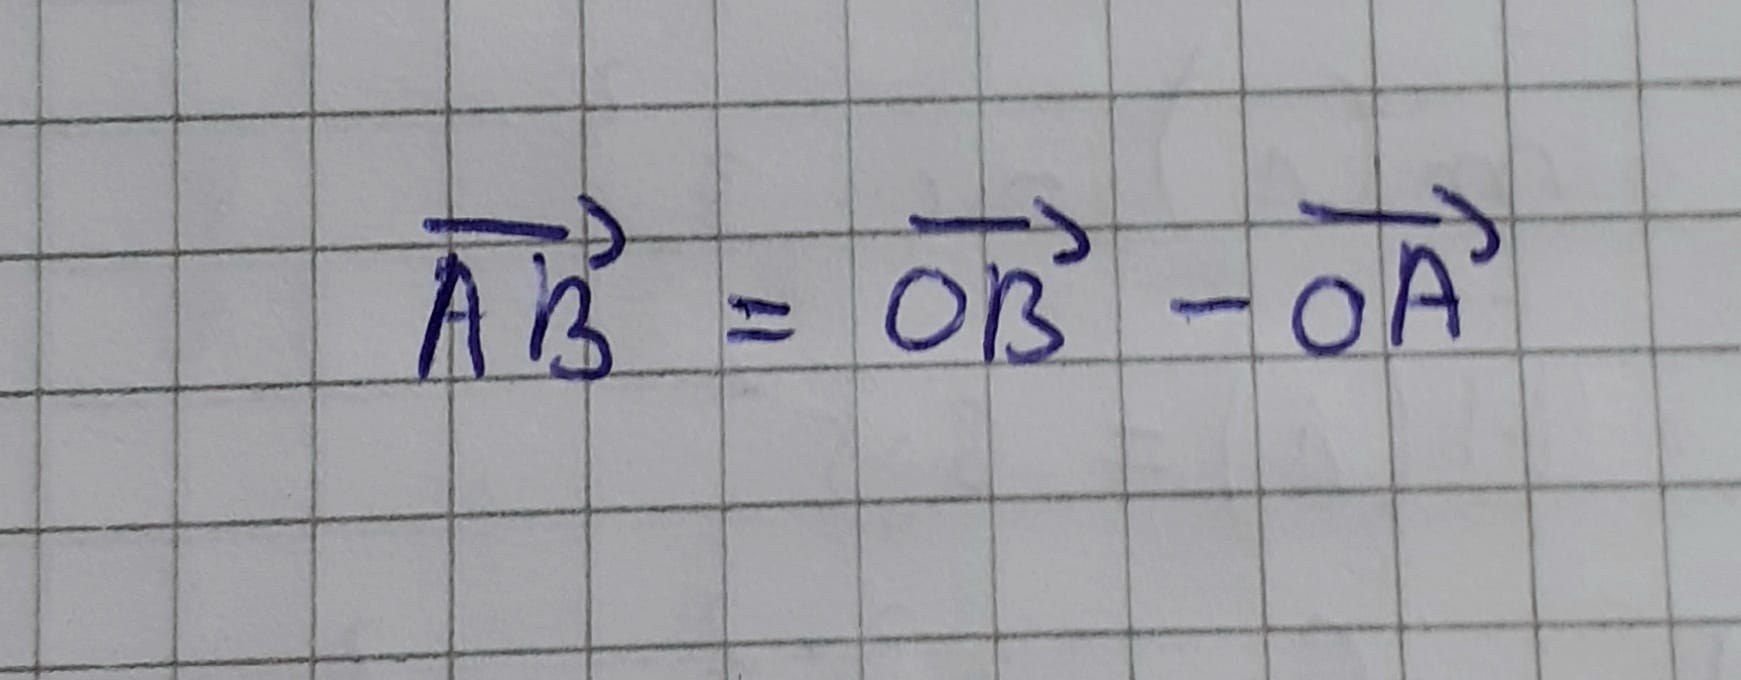 $\overrightarrow{AB} = \overrightarrow{OB} - \overrightarrow{OA}$